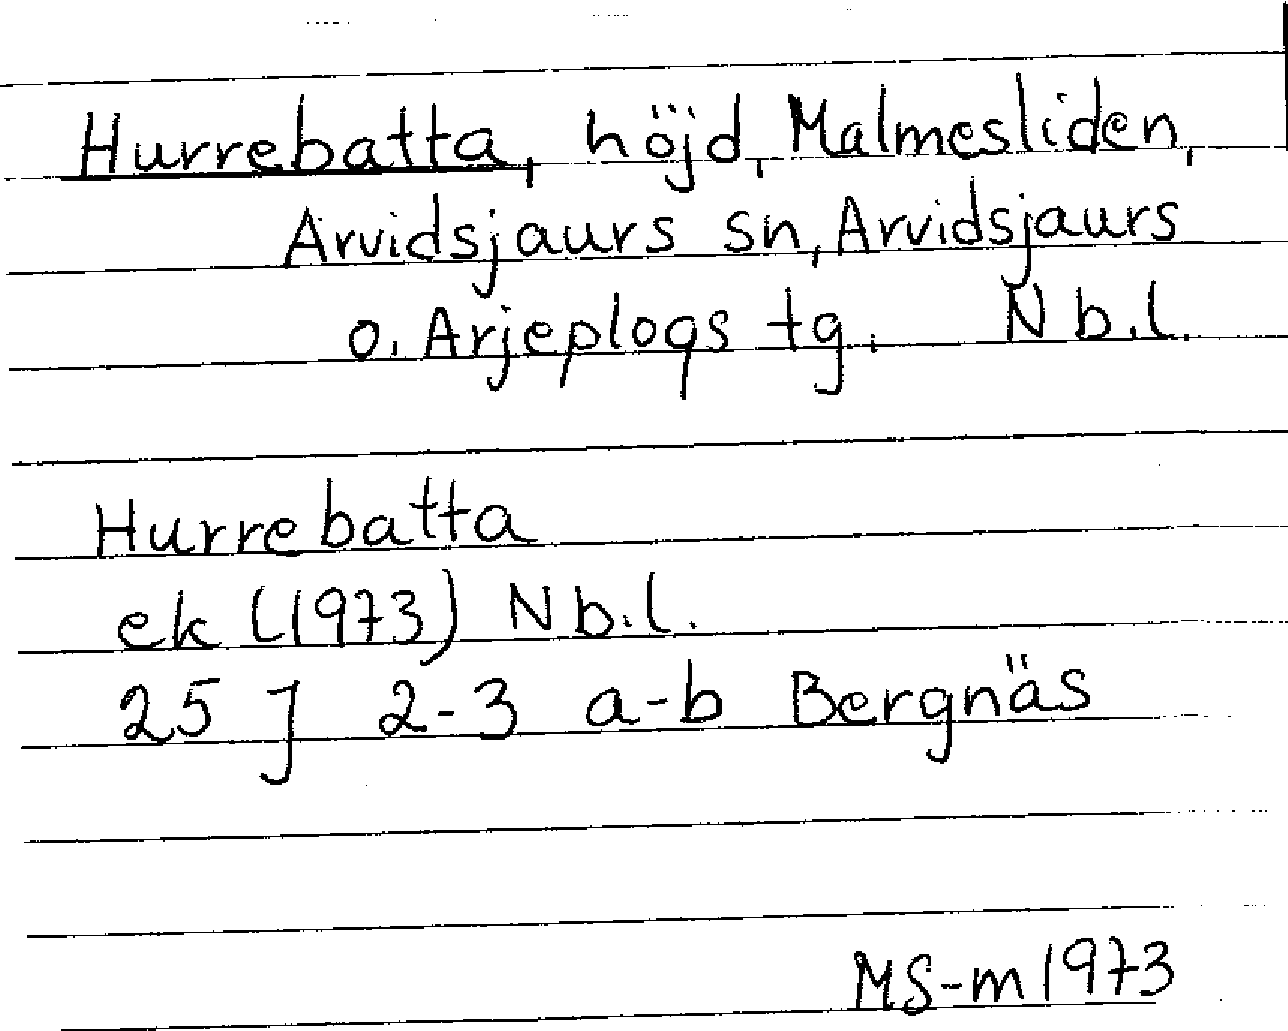 Hurrebatta, höjd, Malmesliden,
Arvidsjaurs sn, Arvidsjaurs
o. Arjeplogs tg. Nb.l.
Hurrebatta
ek (1973) Nb.l.
25 J 2-3 a-b Bergnäs
MS-m 1973